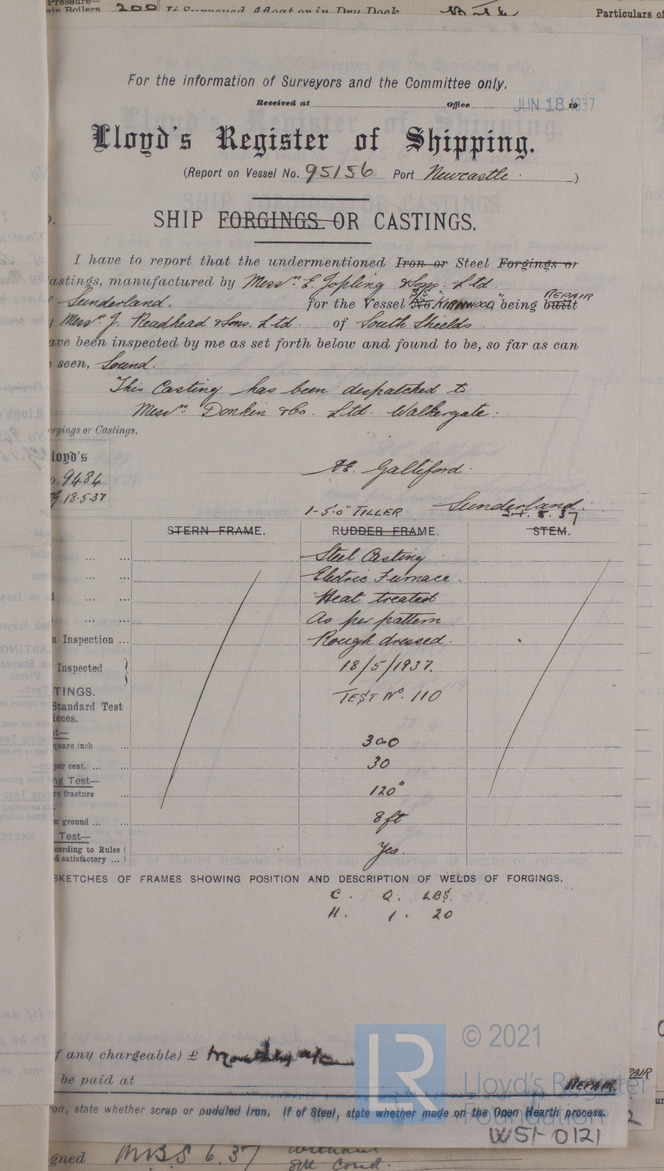 Pressure—
ain Boilers 200 If Surveyed Afloat or in Dry Dock Particulars of
For the information of Surveyors and the Committee only.
Received at Office JUN 18 1937
Lloyd's Register of Shipping.
(Report on Vessel No. 95156 Port Newcastle )
SHIP FORGINGS OR CASTINGS.
I have to report that the undermentioned Iron or Steel Forgings or
astings, manufactured by Messrs E. Jopling & Sons. Ltd
Sunderland. for the Vessel No. S/S "KIRNWOOD" being built REPAIR
Messrs J. Readhead & Sons. Ltd. of South Shields
ave been inspected by me as set forth below and found to be, so far as can
seen, Sound.
This Casting has been despatched to
Messrs Donkin & Co. Ltd. Walkergate.
rgings or Castings.
loyd's
o. 9484
18.5.37
Galliford.
1-5.0" TILLER Sunderland. 5.37
STERN FRAME. RUDDER FRAME. STEM.
Steel Casting
Electric Furnace.
Heat treated
As per pattern
n Inspection ... Rough dressed.
Inspected 18/5/1937.
TINGS. TEST No. 110
Standard Test
ieces.
t—
quare inch ... 30.0
per cent. ... 30
ng Test—
re fracture 120°
ground ... 8ft
Test—
cording to Rules
d satisfactory ... Yes.
SKETCHES OF FRAMES SHOWING POSITION AND DESCRIPTION OF WELDS OF FORGINGS.
C. Q. LBS.
4. 1. 20
f any chargeable) £ Monthly a/c
be paid at
REPAIR.
on, state whether scrap or puddled Iron. If of Steel, state whether made on the Open Hearth process.
LR
© 2021
Lloyd's Register
Foundation
W51-0121
gned 6.37 without